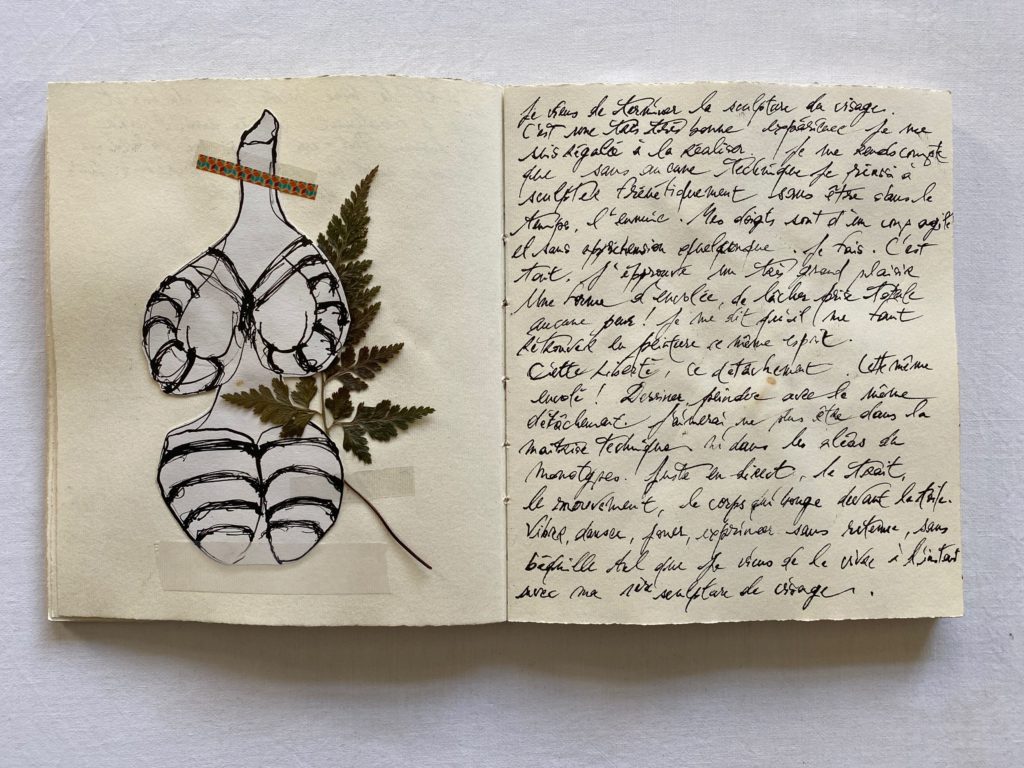 Je viens de terminer la sculpture du visage.
C'est une très très bonne expérience je me
suis régalée à la réaliser. Je me rends compte
que sans aucune technique je réussi à
sculpter frénétiquement sans être dans le
temps, l'ennuie. Mes doigts sont d'un coup agile
et sans appréhension quelconque. Je fais. C'est
tout. J'éprouve un très grand plaisir
Une forme d'envolée, de lâcher prise totale
aucune peur! Je me dit qu'il me faut
retrouver en peinture ce même esprit.
Cette liberté, ce détachement. Cette même
envolé! Dessiner, peindre avec le même
détâchement J'aimerai ne plus être dans la
maîtrise technique ni dans les aléas du
monotypes. Juste en direct, le trait,
le mouvement, le corps qui bouge devant la toile.
Vibrer, danser, jouer, exprimer sans retenue, sans
béquille tel que je viens de le vivre à l'instant
avec ma 1ère sculpture de visage.